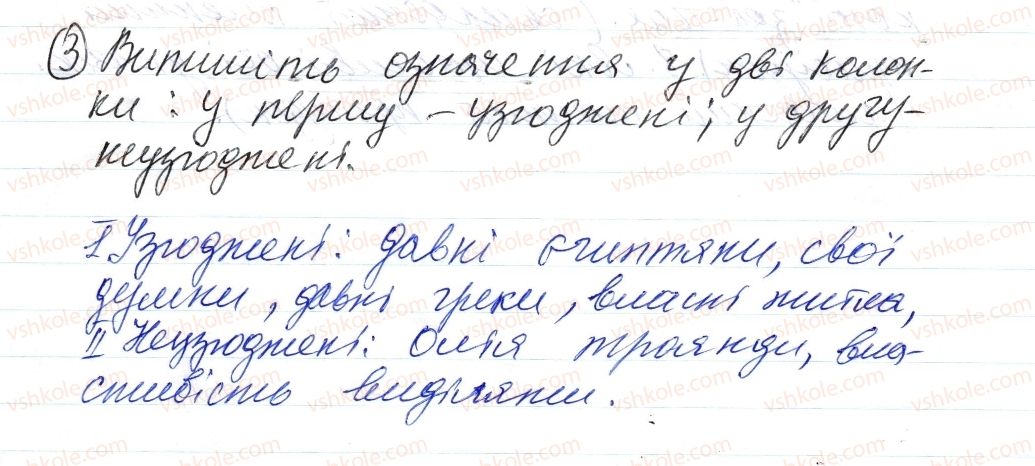 ③ Випишіть означення у дві колон-
ки: у першу – узгоджені; у другу –
неузгоджені.
I Узгоджені: давні єгиптяни, свої
думки, давні греки, власні житла,
II Неузгоджені: Олія троянди, вла-
стивість виділяти.